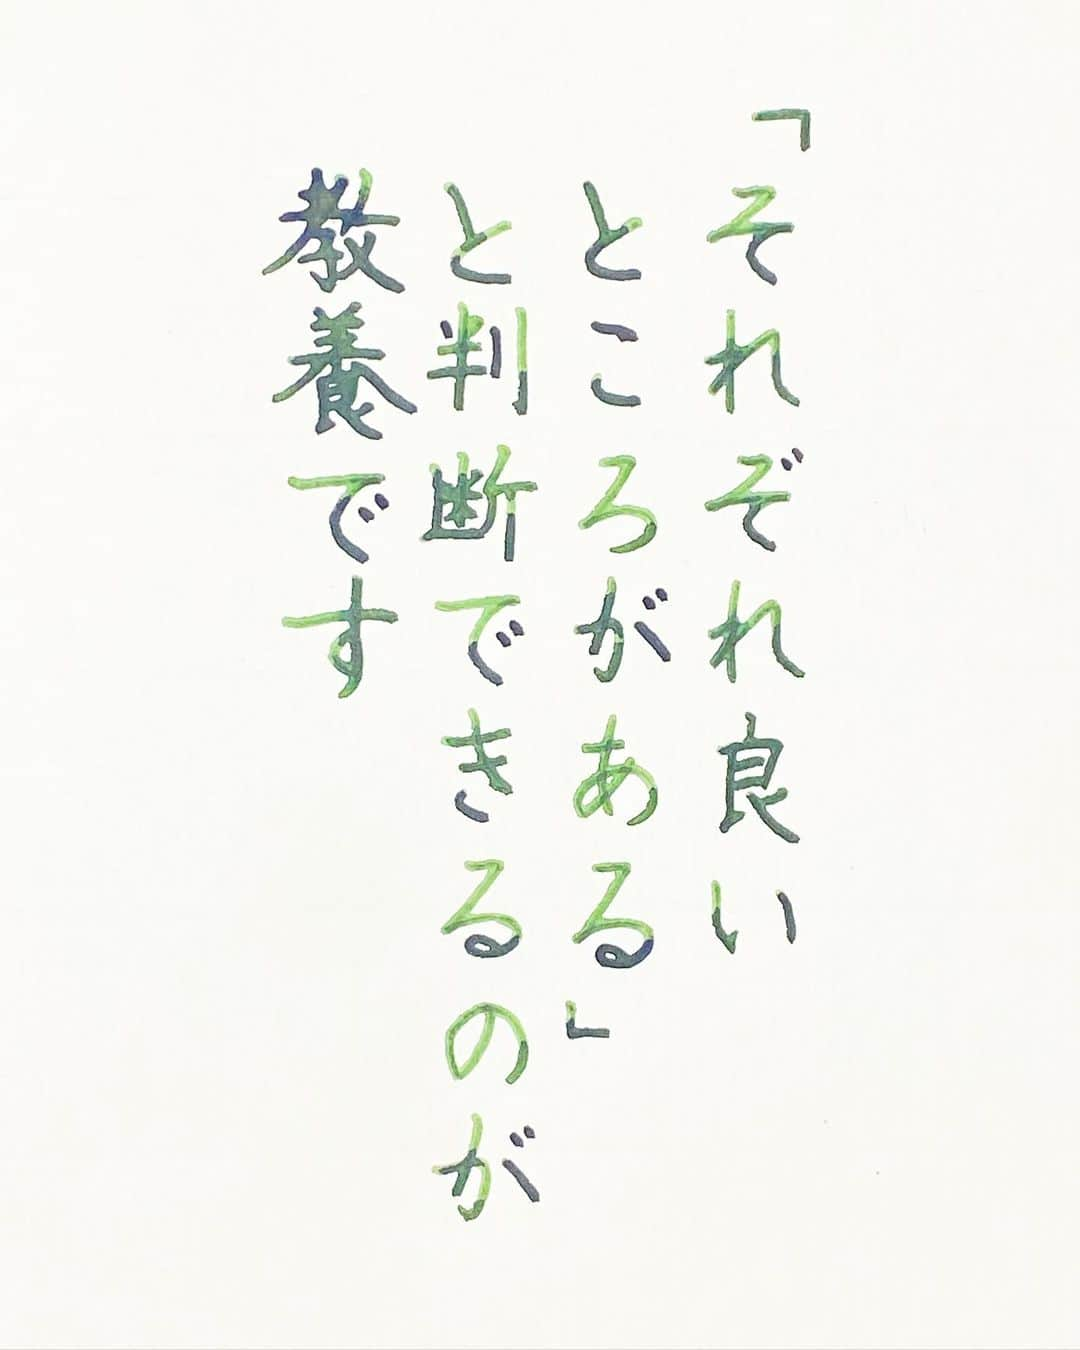 「それぞれ良い
ところがある」
と判断できるのが
教養です